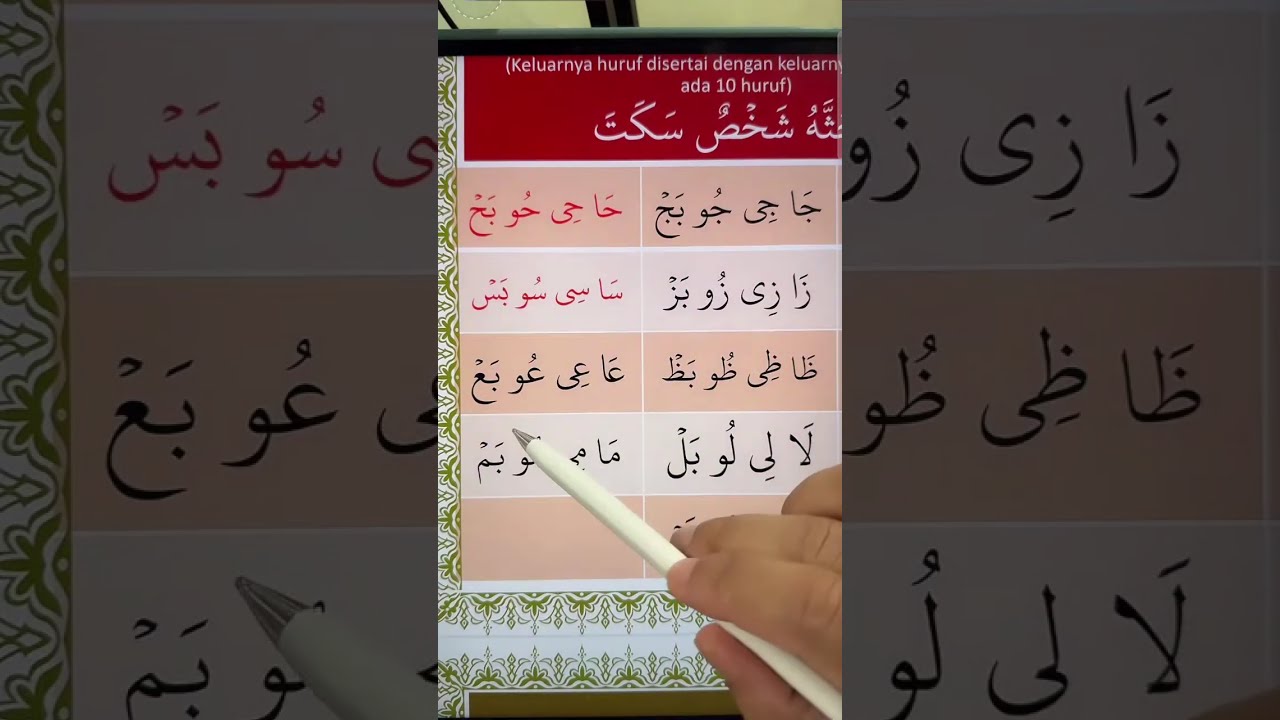 (Keluarnya huruf disertai dengan
ada 10 huruf)
شَخْصٌ سَكَتَ
جَا جِى جُو بَجْ
حَا حِى حُو بَحْ
زَا زِى زُو بَزْ
سَا سِى سُو بَسْ
ظَا ظِى ظُو بَظْ
عَا عِى عُو بَعْ
لَا لِى لُو بَلْ
مَا مِى بَمْ